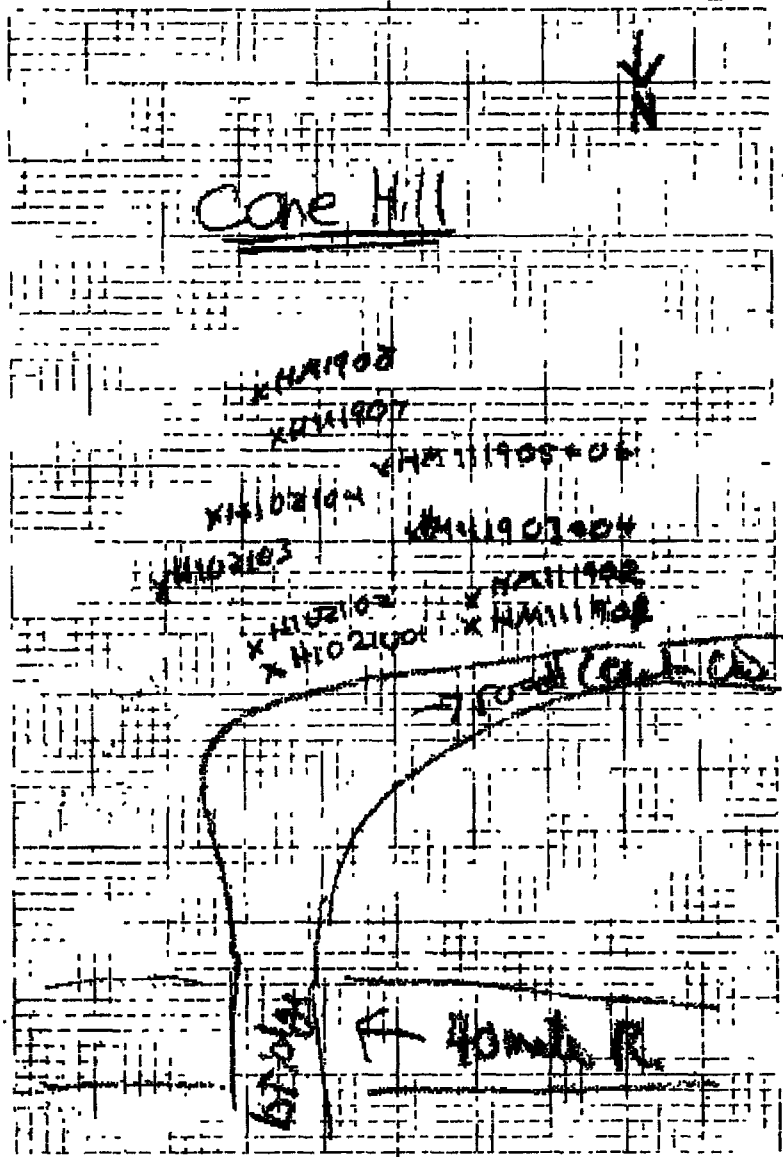 N
Cone Hill
x HM11908
x HM11907
x HM111905+06
x H102104
x HM111903+04
x H102103
x HM111902
x H102102
x H102101
→ road (
bridge
← 40 mile R.